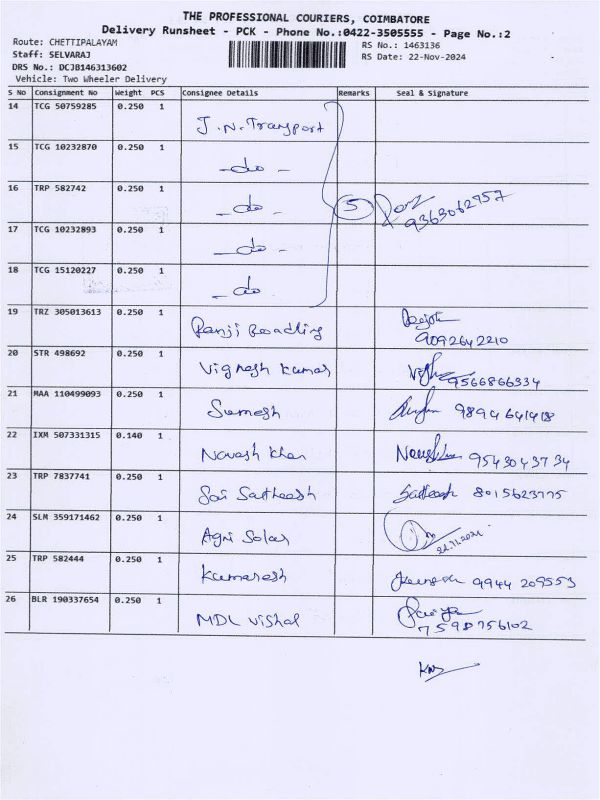 THE PROFESSIONAL COURIERS, COIMBATORE
Delivery Runsheet - PCK - Phone No.:0422-3505555 - Page No.:2
Route: CHETTIPALAYAM RS No.: 1463136
Staff: SELVARAJ RS Date: 22-Nov-2024
DRS No.: DCJB146313602
Vehicle: Two Wheeler Delivery
S No Consignment No Weight PCS Consignee Details Remarks Seal & Signature
14 TCG 50759285 0.250 1 J.N. Transport
15 TCG 10232870 0.250 1 -do-
16 TRP 582742 0.250 1 -do- 5 9363062957
17 TCG 10232893 0.250 1 -do-
18 TCG 15120227 0.250 1 -do-
19 TRZ 305013613 0.250 1 9092642210
20 STR 498692 0.250 1 Vignesh Kumar 9566866334
21 MAA 110499093 0.250 1 Sumesh 9894641418
22 IXM 507331315 0.140 1 Navash Khan 9543043734
23 TRP 7837741 0.250 1 Sai Satheesh Satheesh 8015623775
24 SLM 359171462 0.250 1 Agni Solar 22.11.2024
25 TRP 582444 0.250 1 Kumaresh 9944 209553
26 BLR 190337654 0.250 1 MDL Vishal 7598756102